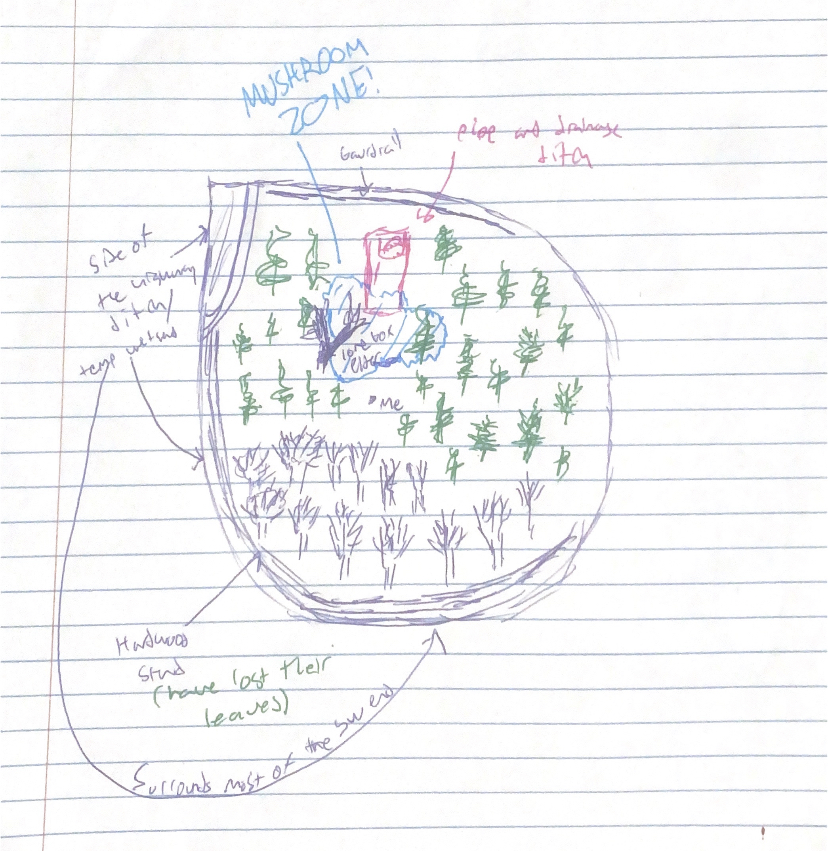 MUSHROOM
ZONE!
Gaurdrail
pipe and drainage
ditch
Side of
the
ditch/
temp wetland
lone box
elder
• Me
Hardwood
Stand
(have lost their
leaves)
Surrounds most of the SW end